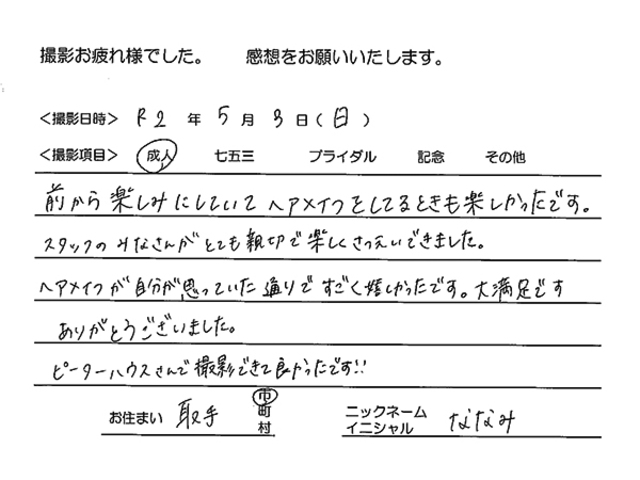 撮影お疲れ様でした。 感想をお願いいたします。
＜撮影日時＞ R2 年 5 月 3 日(日)
＜撮影項目＞ 成人 七五三 ブライダル 記念 その他
前から楽しみにしていて ヘアメイクをしてるときも楽しかったです。
スタッフのみなさんがとても親切で楽しくさつえいできました。
ヘアメイクが自分が思っていた通りですごく嬉しかったです。大満足です
ありがとうございました。
ピーターハウスさんで撮影できて良かったです!!
お住まい 取手 市 町 村
ニックネーム イニシャル ななみ